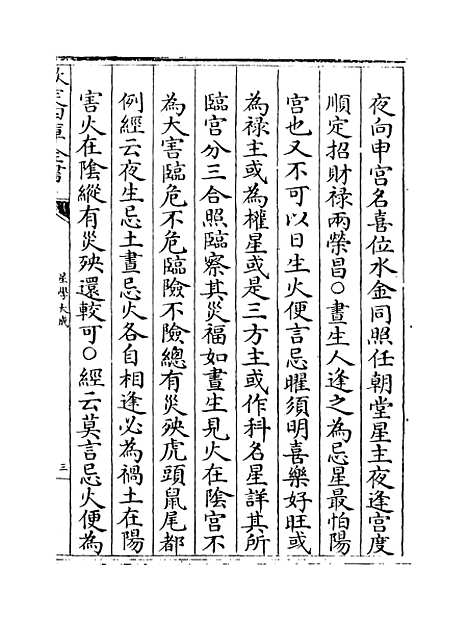 夜向申宮名喜位水金同照任朝堂星主夜逢宮度
順定招財祿兩榮昌○晝生人逢之為忌星最怕陽
宮也又不可以日生火便言忌曜須明喜樂好旺或
為祿主或為權星或是三方主或作科名星詳其所
臨宮分三合照臨察其災福如晝生見火在陰宮不
為大害臨危不危臨險不險總有災殃虎頭鼠尾都
例經云夜生忌土晝忌火各自相逢必為禍土在陽
害火在陰縱有災殃還較可○經云莫言忌火便為
欽定四庫全書
星學大成
三